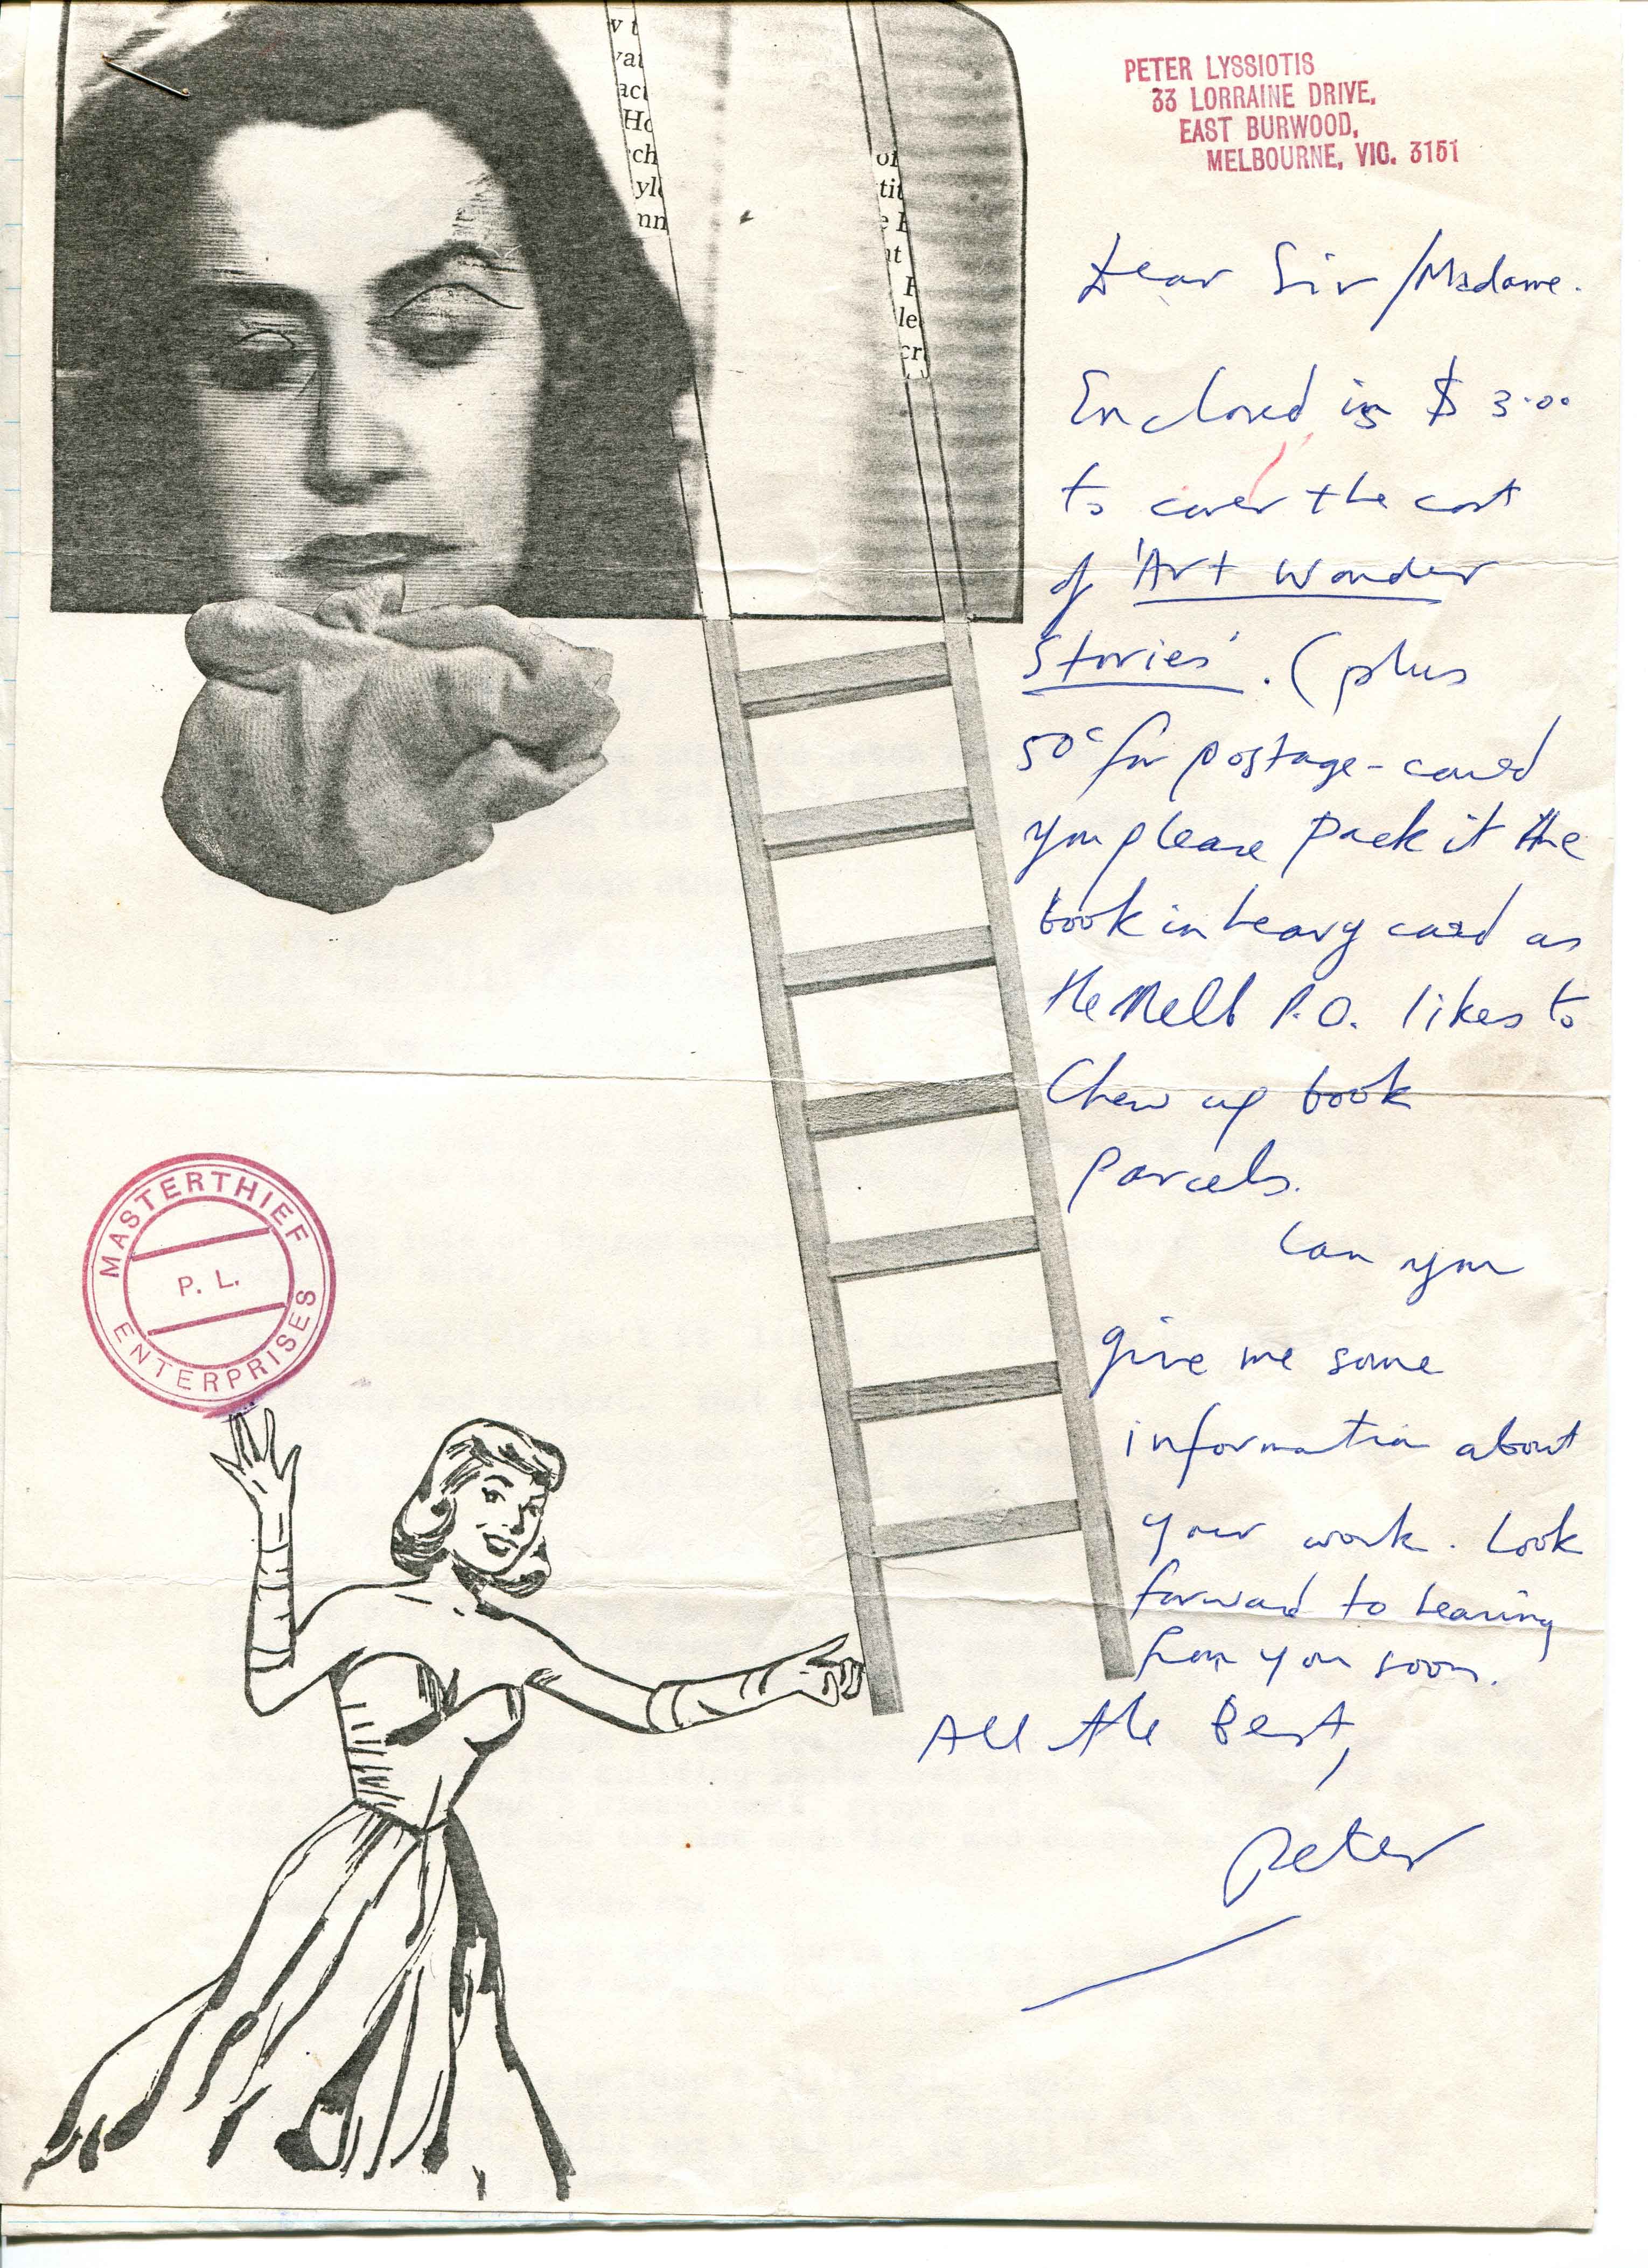 PETER LYSSIOTIS
33 LORRAINE DRIVE,
EAST BURWOOD,
MELBOURNE, VIC. 3151
Dear Sir/Madame.
Enclosed is $3.00
to cover the cost
of 'Art Wonder
Stories'. (plus
50c for postage - could
you please pack it the
book in heavy card as
the Melb P.O. likes to
Chew up book
parcels.
Can you
give me some
information about
your work. Look
forward to hearing
from you soon.
All the Best,
Peter
MASTERTHIEF
P. L.
ENTERPRISES
v t
vat
act
Ho
ch
yle
mn
of
tit
e E
nt
F
le
cr